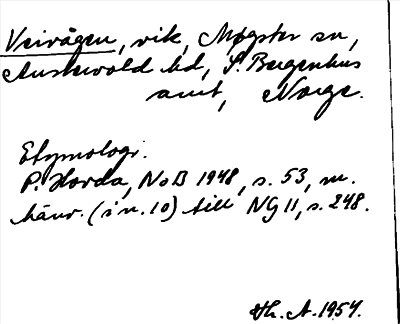 Veivågen, vik, Møgster sn,
Austevold hd, S. Bergenhus
amt, Norge.
Etymologi.
P. Hovda, NoB 1948, s. 53, m.
hänv. (i n. 10) till NG 11, s. 248.
Th. A. 1954.